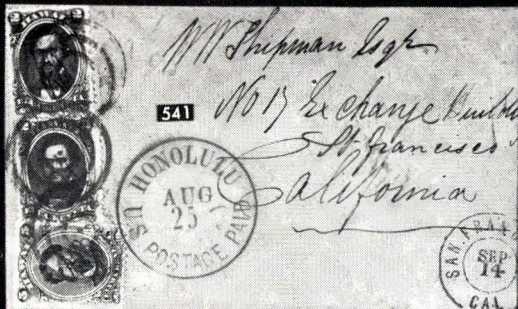 W W Shipman Esqr
541
No 17 Exchange Building
St Francisco
California
HONOLULU
AUG
25
US POSTAGE PAID
SAN FRAN
SEP
14
CAL